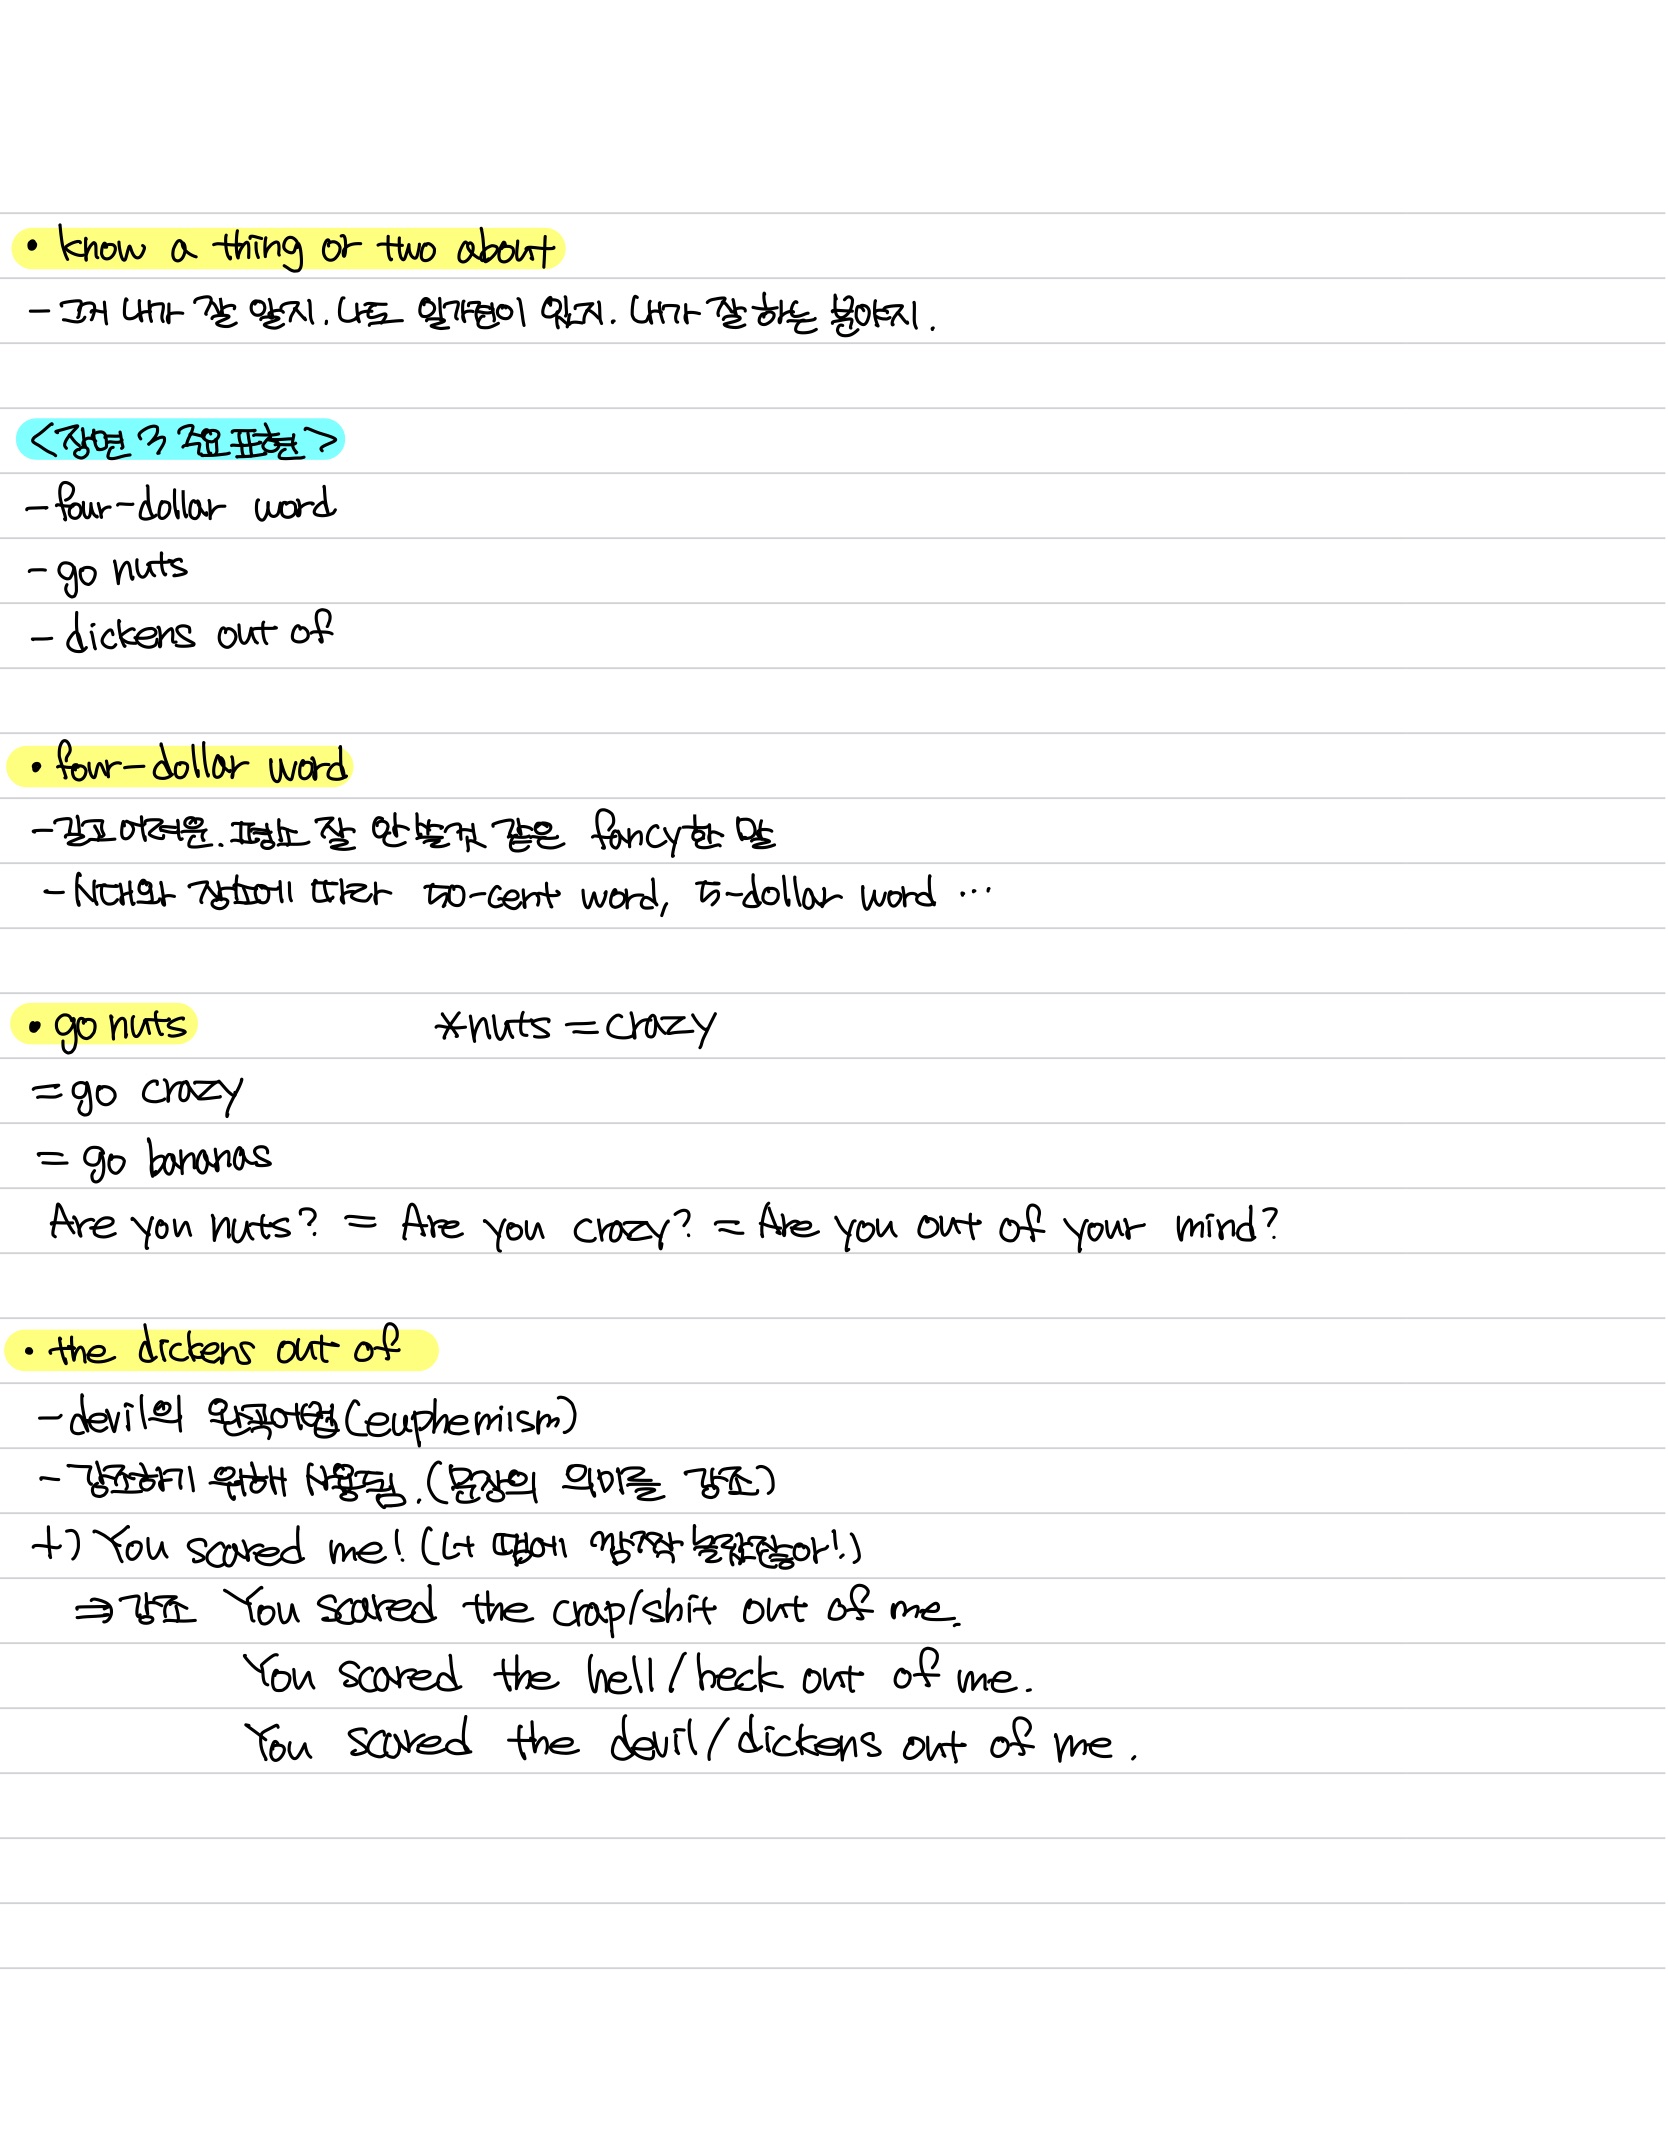 • know a thing or two about
- 그거 내가 잘 알지. 나도 일가견이 있지. 내가 잘 하는 분야지.
<장면 3 주요표현>
- four-dollar word
- go nuts
- dickens out of
• four-dollar word
- 길고 어려운. 평소 잘 안 쓸 것 같은 fancy한 말
- 시대와 장소에 따라 50-cent word, 5-dollar word ...
• go nuts *nuts = crazy
= go crazy
= go bananas
Are you nuts? = Are you crazy? = Are you out of your mind?
• the dickens out of
- devil의 완곡어법(euphemism)
- 강조하기 위해 사용됨. (문장의 의미를 강조)
+) You scared me! (너 땜에 깜짝 놀랐잖아!)
⇒ 강조 You scared the crap/shit out of me.
You scared the hell/heck out of me.
You scared the devil/dickens out of me.